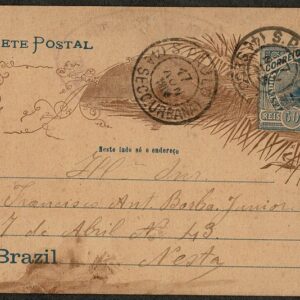 ETE POSTAL
S. PAULO
URBANA
CORREIO
REIS
Neste lado só o endereço
Ill Snr.
Francisco Ant. Borba Junior
7 de Abril No 43
Brazil Nesta